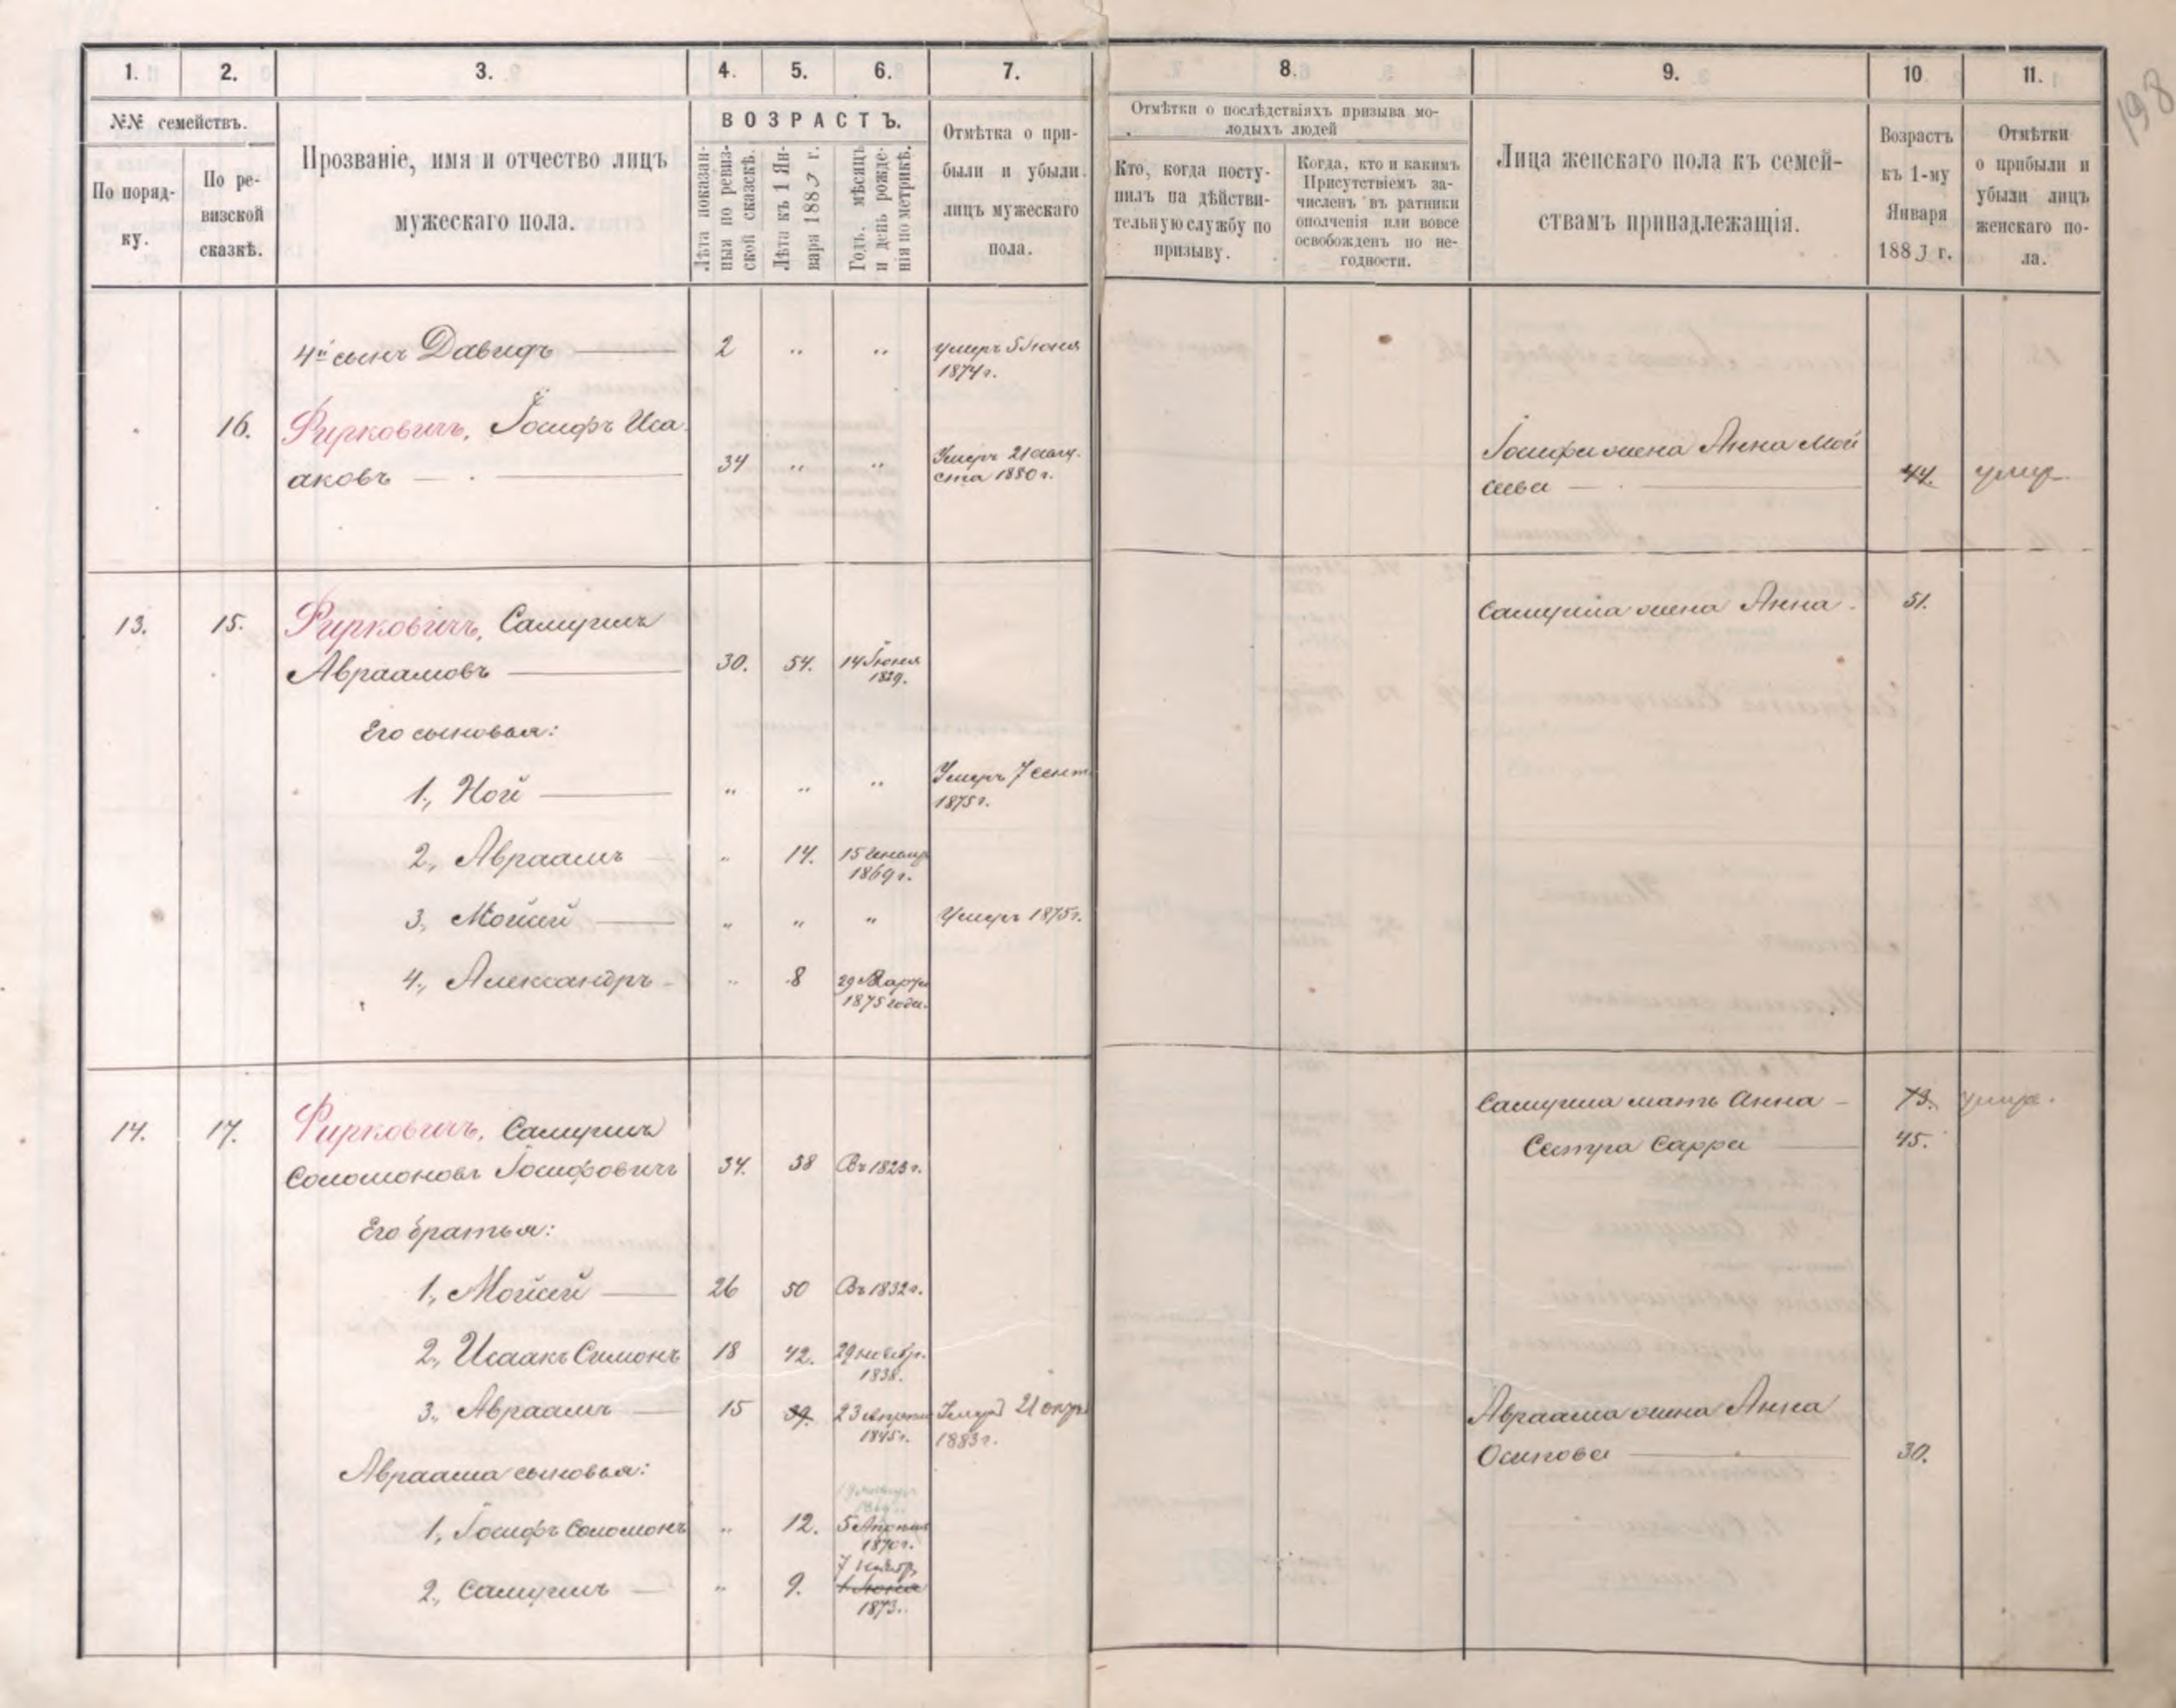 198
1. 2. 3. 4. 5. 6. 7. 8. 9. 10 11.
№№ семействъ.
По поряд-
ку.
По ре-
визской
сказкѣ.
Прозваніе, имя и отчество лицъ
мужескаго пола.
ВОЗРАСТЪ.
Лѣта показан-
ныя по ревиз-
ской сказкѣ.
Лѣта къ 1 Ян-
варя 1883 г.
Годъ, мѣсяцъ
и день рожде-
нія по метрикѣ.
Отмѣтка о при-
были и убыли
лицъ мужескаго
пола.
Отмѣтки о послѣдствіяхъ призыва мо-
лодыхъ людей
Кто, когда посту-
пилъ на дѣйстви-
тельную службу по
призыву.
Когда, кто и какимъ
Присутствіемъ за-
численъ въ ратники
ополченія или вовсе
освобожденъ по не-
годности.
Лица женскаго пола къ семей-
ствамъ принадлежащія.
Возрастъ
къ 1-му
Января
1883 г.
Отмѣтки
о прибыли и
убыли лицъ
женскаго по-
ла.
4й сынъ Давидъ 2 " " умеръ 5 Іюня
1874 г.
16. Фирковичъ, Іосифъ Иса
аковъ 34 " " Умеръ 21 авгу-
ста 1880 г.
Іосифа жена Анна Мои
сеева 44. умер
13. 15. Фирковичъ, Самуилъ
Авраамовъ 30. 54. 14 Іюня
1829.
Самуила жена Анна. 51.
Его сыновья:
1., Ной " " " Умеръ 7 сент.
1875 г.
2., Авраамъ " 14. 15
1869 г.
3., Мойсей " " " Умеръ 1875 г.
4., Александръ " 8 29 Марта
1875 года.
14. 17. Фирковичъ, Самуилъ
Соломоновъ Іосифовичъ 34. 58 Въ 1823 г.
Самуила мать Анна 73. умер.
Сестра Сарра 45.
Его братья:
1., Мойсей 26 50 Въ 1832 г.
2., Исаакъ Симонъ 18 42. 29 ноябр.
1838.
3., Авраамъ 15 39. 23
1845 г.
Умеръ 21
1883 г.
Авраама жена Анна
Осипова 30.
Авраама сыновья:
1., Іосифъ Соломонъ " 12. 5 Апрѣля
1870 г.
2., Самуилъ " 9. 7 ноябр.
1 Іюня
1873.